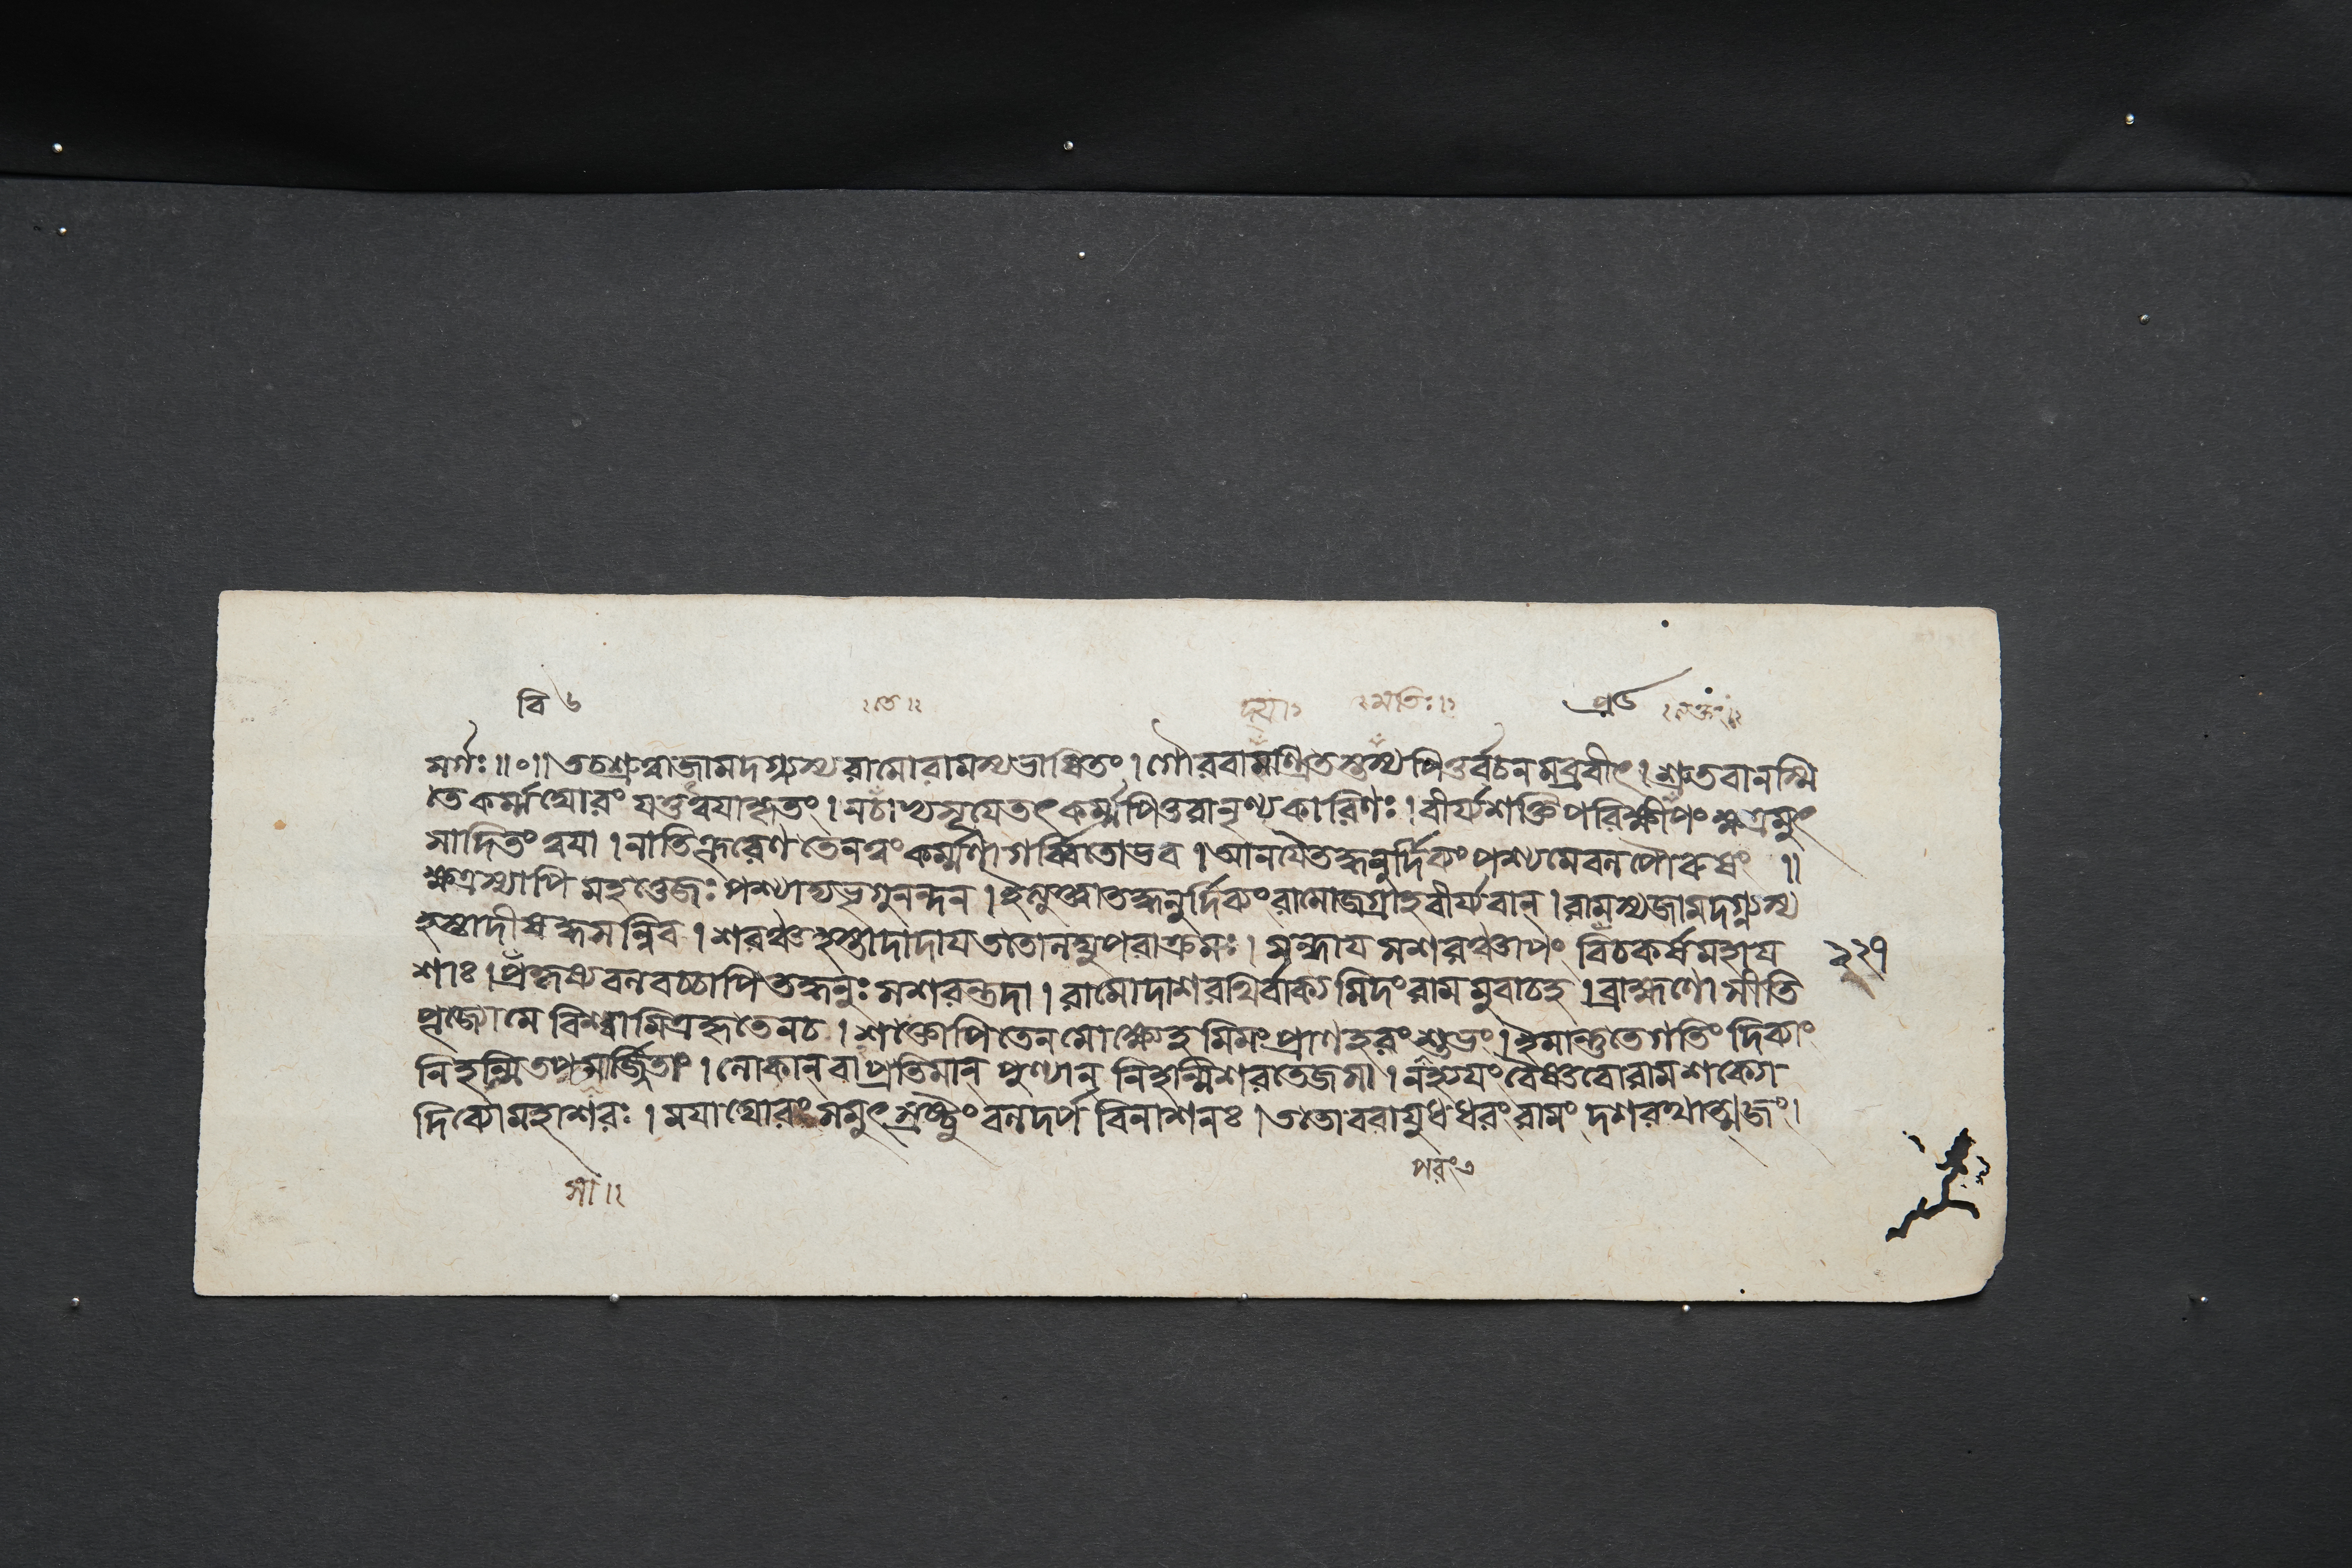 বি ৬
তে॥
মতিঃ॥
সর্গঃ॥০॥তচশ্রুত্বাজামদগ্ন্যস্যরামোরামস্যভাষিতং।গৌরবামশ্রিতস্তস্যপিতুর্বচনমব্রবীৎ।শ্রুতবানস্মি
তেকর্ম্মঘোরং যত্তুত্বযাকৃতং।নচাভ্যসূযেতৎকর্ম্মপিতুরানৃণ্যকারিণঃ।বীর্য্যশক্তিপরিক্ষীণংক্ষত্রমুৎ
সাদিতংত্বযা।নাতিক্রূরেণতেনত্বংকর্ম্মণাগর্ব্বিতোভব।আনযৈতদ্ধনুর্দিব্যংপশ্যমেবলপৌরুষং ॥
ক্ষত্রস্যাপি মহত্তেজঃপশ্যাদ্যভৃগুনন্দন।ইত্যুক্ত্বাতদ্ধনুর্দিব্যংরামোজগ্রাহবীর্য্যবান্।রামস্যজামদগ্ন্যস্য
হস্তাদীষদ্ধসন্নিব।শরঞ্চহস্তাদাদাযততোলঘুপরাক্রমঃ।সন্ধাযসশরঞ্চাপং বিচকর্ষমহায ২২৭
শাঃ।প্রকৃষ্যবলবচ্চাপিতদ্ধনুঃসশরন্তদা।রামোদাশরথির্বাক্যমিদংরামমুবাচহ।ব্রাহ্মণোসীতি
পূজ্যোমে বিশ্বামিত্রকৃতেনচ।শক্তোপিতেনমোক্ষ্যেহমিমংপ্রাণহরংশুভং।ইমান্তুতেগতিং দিব্যাং
নিহন্মিতপসার্জ্জিতাং।লোকান্ বাপ্রতিমান্ পুণ্যান্ নিহন্মিশরতেজসা।নহ্যযংবৈষ্ণবোরামশক্যো
দিব্যোমহাশরঃ।মযাঘোরংসমুৎস্রষ্টুংবলদর্প বিনাশনঃ।ততোবরাযুধধরংরামং দশরথাত্মজং।
সা॥
পরং৭